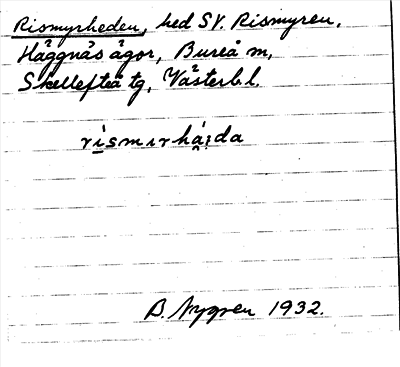 Rismyrheden, hed SV. Rismyren,
Häggnäs ägor, Bureå sn,
Skellefteå tg, Västerb.l.
rismırhä:da
B. Nygren 1932.